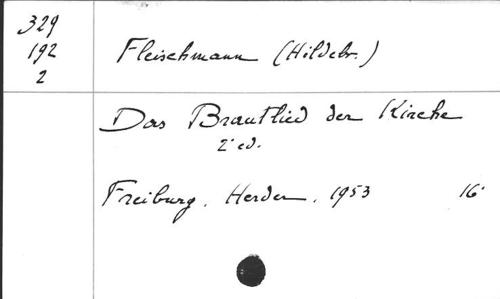 329
192
2
Fleischmann (Hildebr.)
Das Brautlied der Kirche
2ª ed.
Freiburg. Herder. 1953 16°